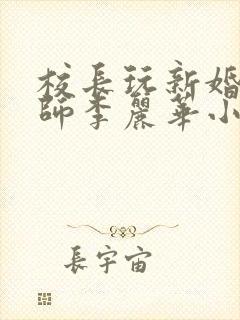 校長玩新婚
師李麗華小
長宇宙